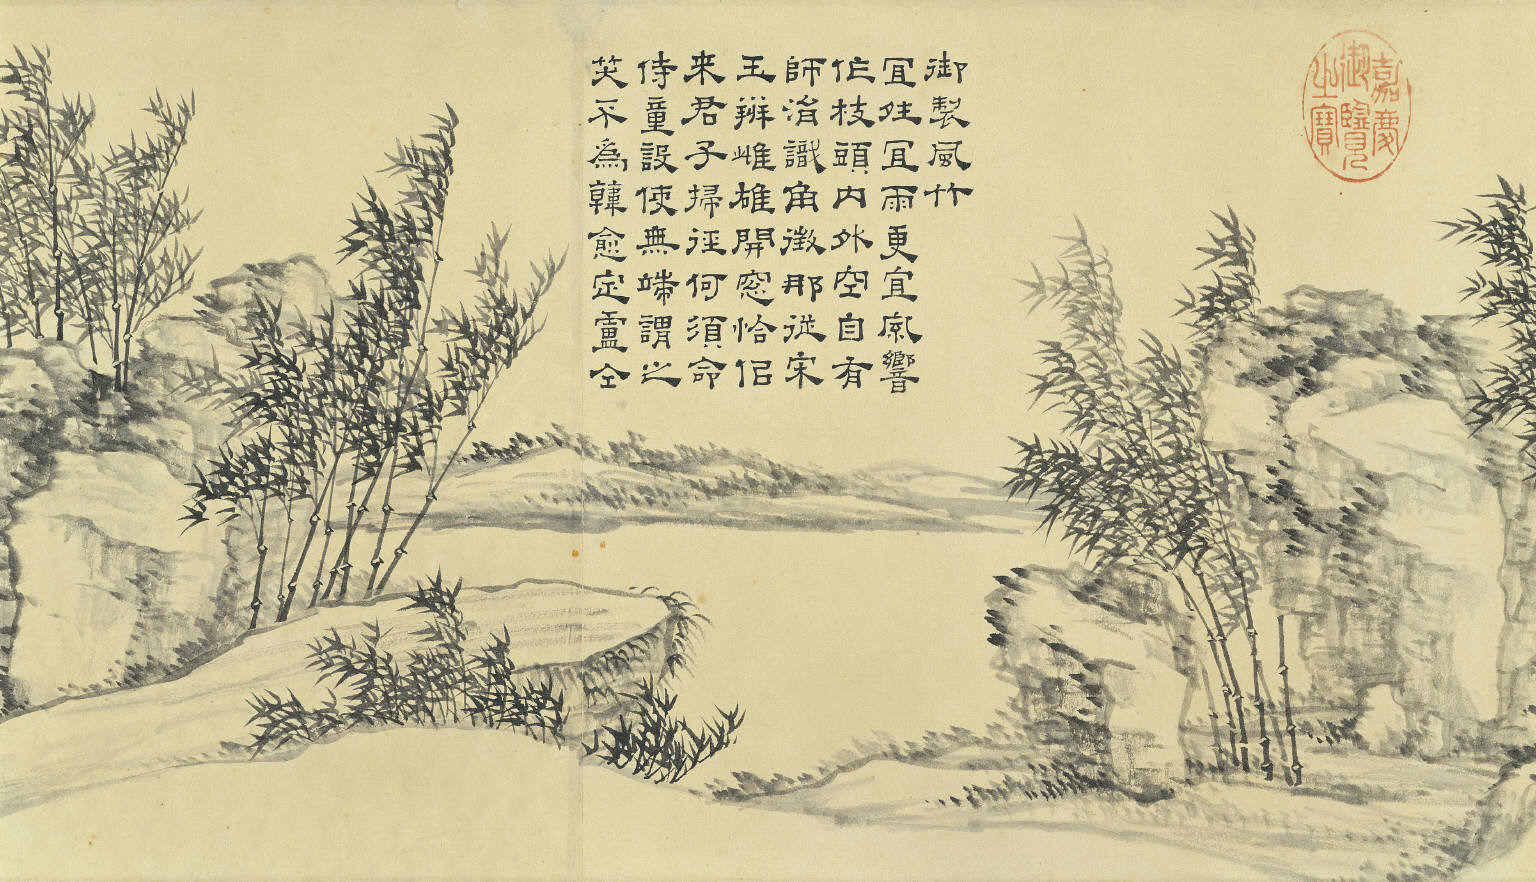 嘉慶
御覽
之寶
御製風竹
宜夝宜雨更宜風響
作枝頭内外空自有
師涓識角徵那從宋
玉辨雌雄開窓恰佀
来君子掃徑何須命
侍童設使無端謂之
笑不為韓愈定盧仝